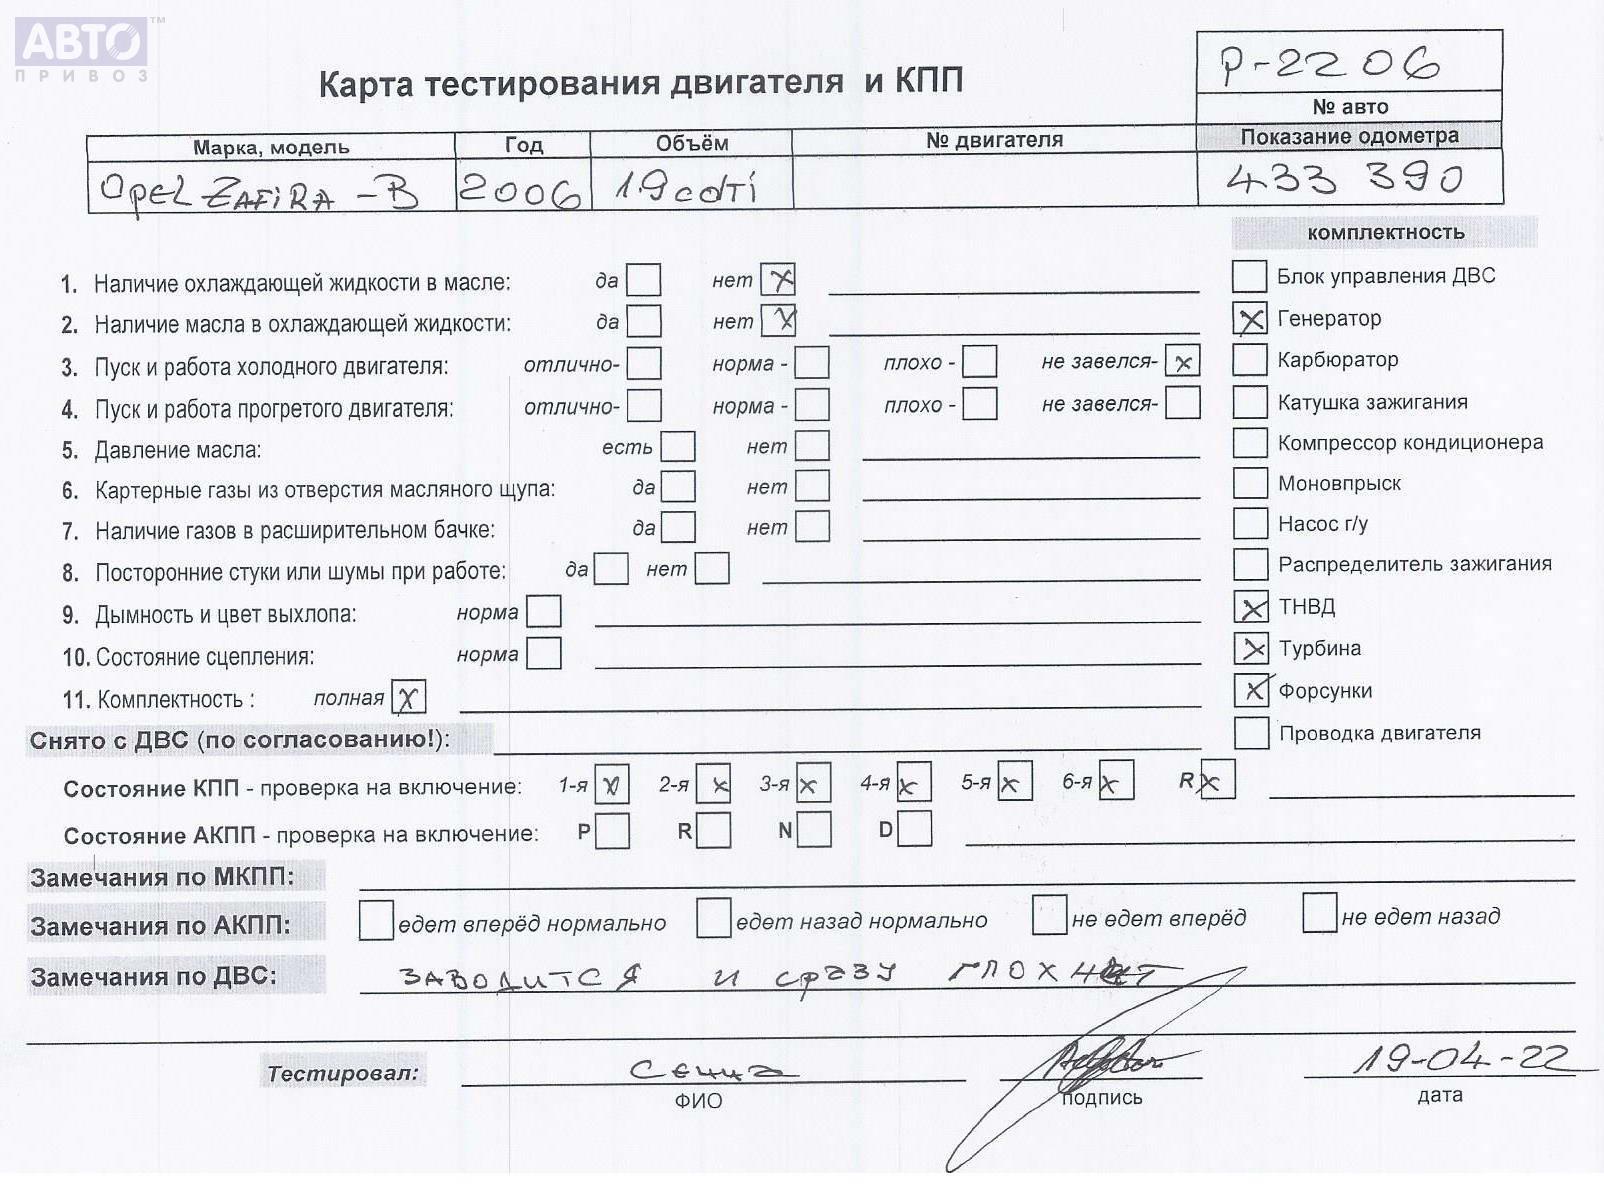 АВТО™
ПРИВОЗ
Карта тестирования двигателя и КПП
P-2206
№ авто
Марка, модель Год Объём № двигателя Показание одометра
Opel ZAFIRA-B 2006 1.9 cdti 433 390
комплектность
1. Наличие охлаждающей жидкости в масле: да нет X
Блок управления ДВС
2. Наличие масла в охлаждающей жидкости: да нет X
X Генератор
3. Пуск и работа холодного двигателя: отлично- норма - плохо - не завелся- X
Карбюратор
4. Пуск и работа прогретого двигателя: отлично- норма - плохо - не завелся-
Катушка зажигания
5. Давление масла: есть нет
Компрессор кондиционера
6. Картерные газы из отверстия масляного щупа: да нет
Моновпрыск
7. Наличие газов в расширительном бачке: да нет
Насос г/у
8. Посторонние стуки или шумы при работе: да нет
Распределитель зажигания
9. Дымность и цвет выхлопа: норма
X ТНВД
10. Состояние сцепления: норма
X Турбина
11. Комплектность : полная X
X Форсунки
Снято с ДВС (по согласованию!):
Проводка двигателя
Состояние КПП - проверка на включение: 1-я X 2-я X 3-я X 4-я X 5-я X 6-я X R X
Состояние АКПП - проверка на включение: P R N D
Замечания по МКПП:
Замечания по АКПП: едет вперёд нормально едет назад нормально не едет вперёд не едет назад
Замечания по ДВС: ЗАВОДИТСЯ И СРАЗУ ГЛОХНЕТ
Тестировал: 19-04-22
ФИО подпись дата